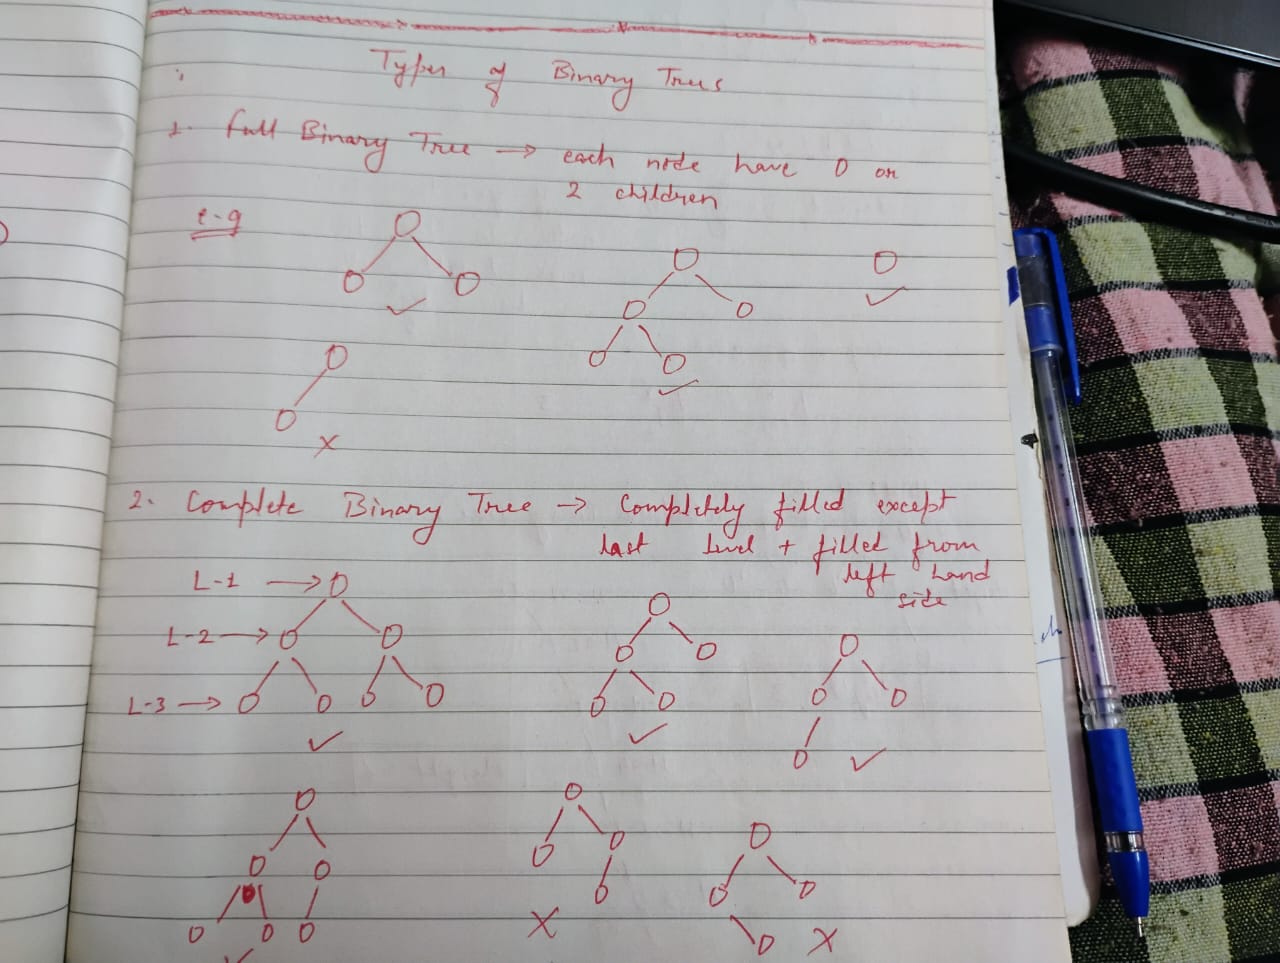 Types of Binary Trees
1. Full Binary Tree → each node have 0 or
2 children
e-g
2. Complete Binary Tree → Completely filled except
last level + filled from
left hand
side
L-1 →
L-2 →
L-3 →